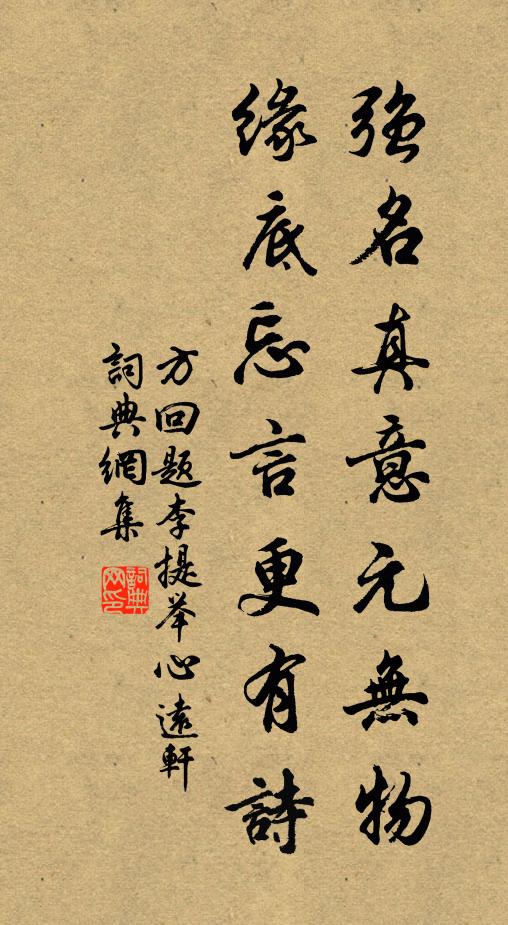 强名真意元無物
緣底忘言更有詩
方回題李提举心遠軒
詞典網集
詞典网印